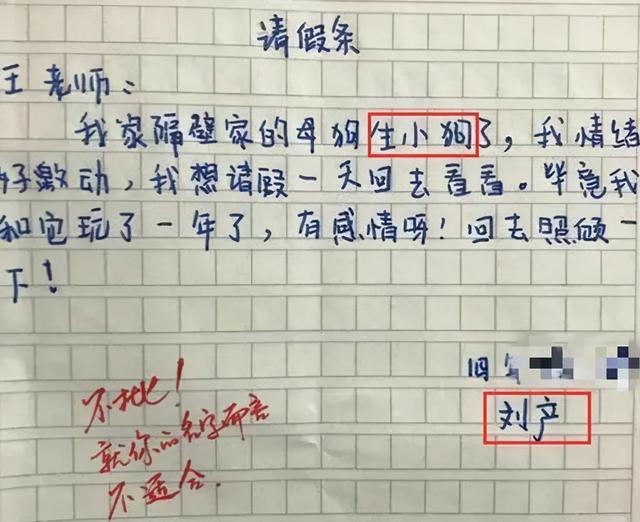 请假条
王老师:
我家隔壁家的母狗生小狗了,我情绪
好激动,我想请假一天回去看看。毕竟我
和它玩了一年了,有感情呀!回去照顾一
下!
刘产
不批!
就你的名字而言
不适合.